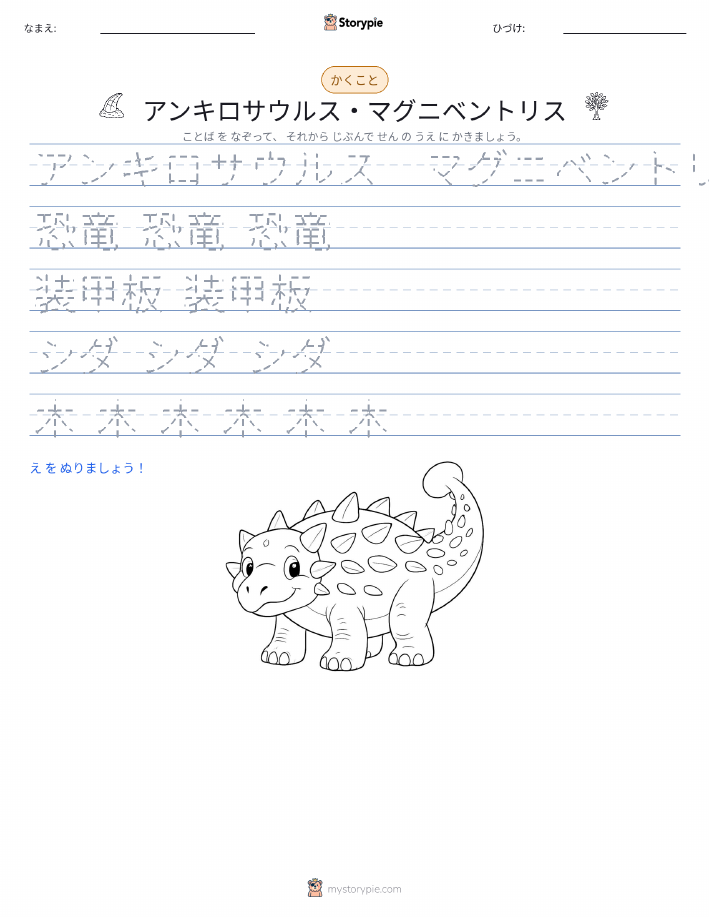 なまえ: Storypie ひづけ:
かくこと
アンキロサウルス・マグニベントリス
ことば を なぞって、 それから じぶんで せん の うえ に かきましょう。
アンキロサウルス マグニベントリ
恐竜 恐竜 恐竜
装甲板 装甲板
シダ シダ シダ
木 木 木 木 木 木
え を ぬりましょう！
mystorypie.com